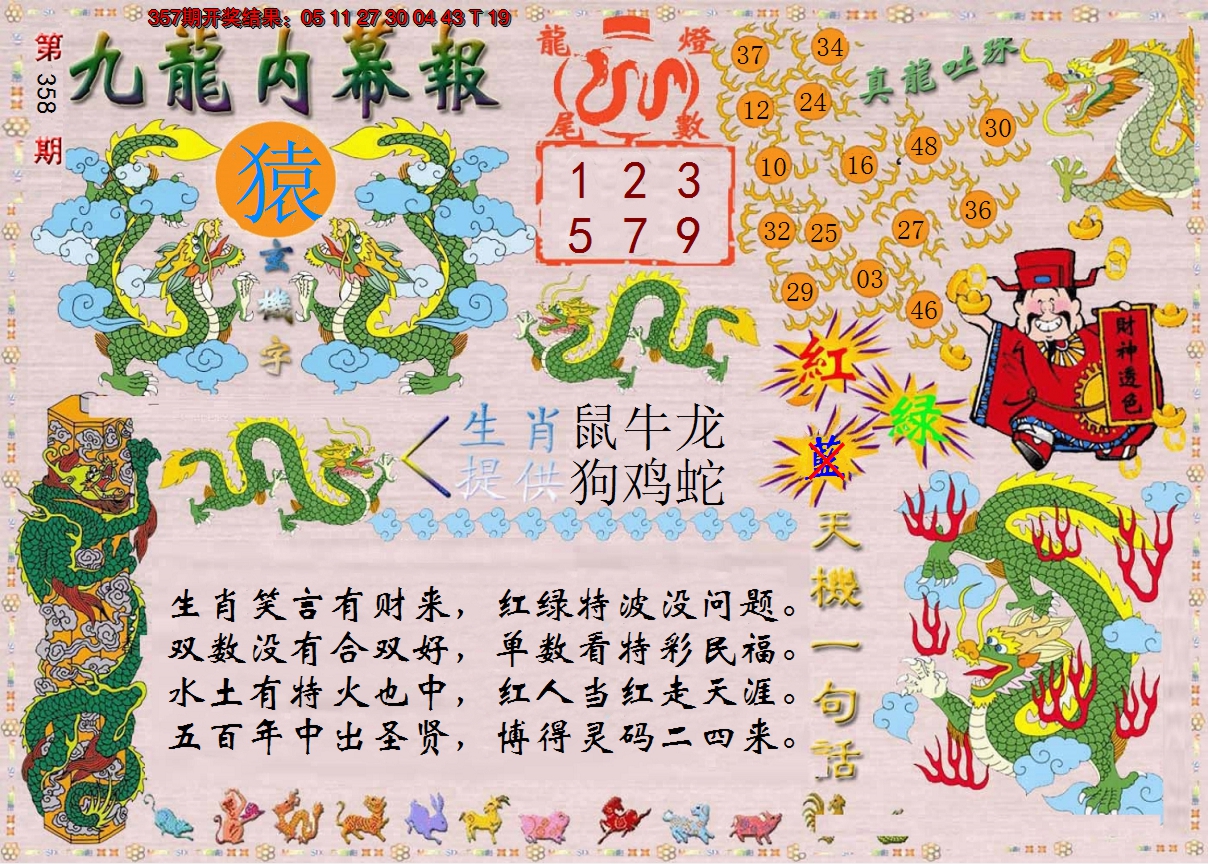 357期开奖结果：05 11 27 30 04 43 T 19
第358期
九龍内幕報
猿
玄機字
龍燈尾數
1 2 3
5 7 9
真龍吐珠
37 34
12 24
10 16 48 30
32 25 27 36
29 03 46
財神透色
紅
绿
藍
生肖提供
鼠牛龙
狗鸡蛇
天機一句话
生肖笑言有财来，红绿特波没问题。
双数没有合双好，单数看特彩民福。
水土有特火也中，红人当红走天涯。
五百年中出圣贤，博得灵码二四来。